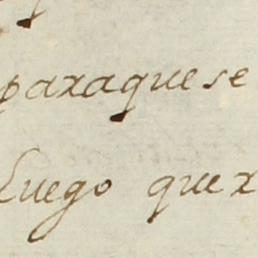 paraquese
Luego quer